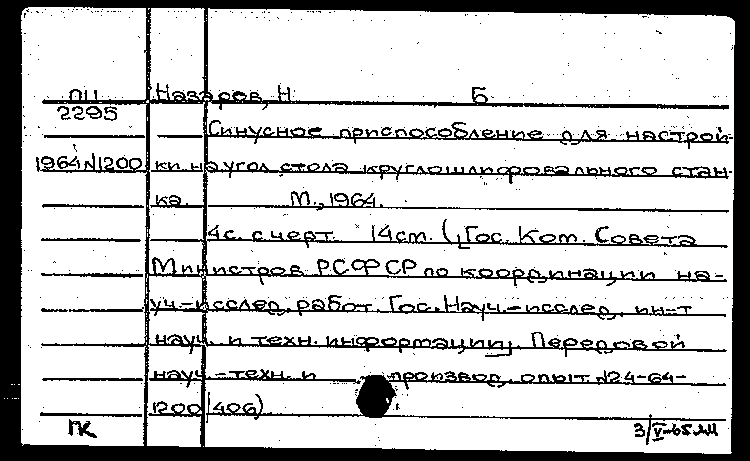 ПЦ Назаров, Н Б
2295
Синусное приспособление для настрой-
1964 N1200 ки на угол стола круглошлифовального стан-
ка. М., 1964.
4с. с черт. 14 см. (Гос. Ком. Совета
Министров РСФСР по координации на-
уч-исслед. работ. Гос. Науч.-исслед. ин-т
науч. и техн. информации. Передовой
науч.-техн. и производ. опыт. N24-64-
1200/406)
ГК 3/V-65